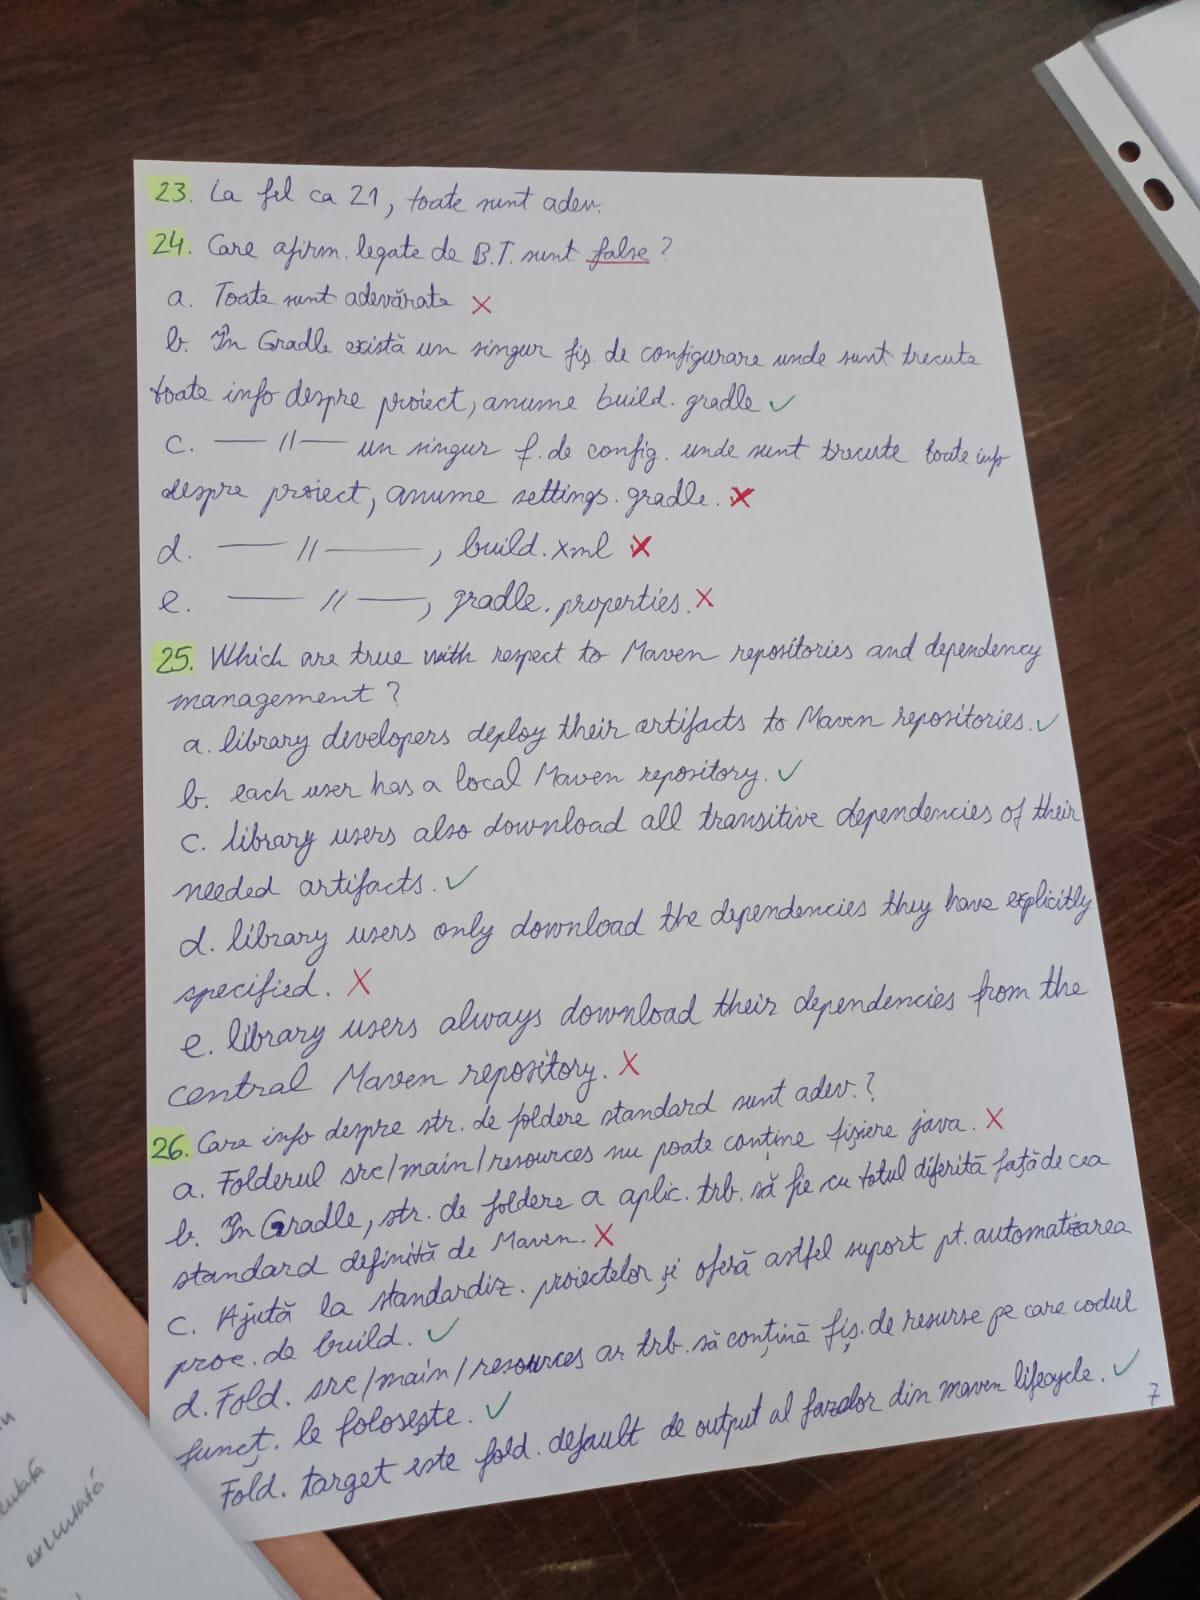 23. La fel ca 21, toate sunt adev.
24. Care afirm. legate de B.T. sunt false?
a. Toate sunt adevărate ✗
b. În Gradle există un singur fiș. de configurare unde sunt trecute
toate info despre proiect, anume build.gradle ✓
c. —— // —— un singur f. de config. unde sunt trecute toate info
despre proiect, anume settings.gradle. ✗
d. —— // ——, build.xml ✗
e. —— // ——, gradle.properties. ✗
25. Which are true with respect to Maven repositories and dependency
management?
a. library developers deploy their artifacts to Maven repositories. ✓
b. each user has a local Maven repository. ✓
c. library users also download all transitive dependencies of their
needed artifacts. ✓
d. library users only download the dependencies they have explicitly
specified. ✗
e. library users always download their dependencies from the
central Maven repository. ✗
26. Care info despre str. de foldere standard sunt adev.?
a. Folderul src/main/resources nu poate conține fișiere java. ✗
b. În Gradle, str. de foldere a aplic. trb. să fie cu totul diferită față de cea
standard definită de Maven. ✗
c. Ajută la standardiz. proiectelor și oferă astfel suport pt. automatizarea
proc. de build. ✓
d. Fold. src/main/resources ar trb. să conțină fiș. de resurse pe care codul
funcț. le folosește. ✓
Fold. target este fold. default de output al fazelor din maven lifecycle. ✓
7
executată